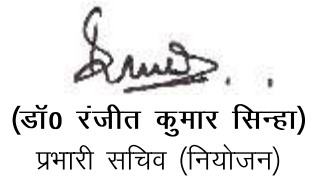 (डॉ0 रंजीत कुमार सिन्हा)
प्रभारी सचिव (नियोजन)